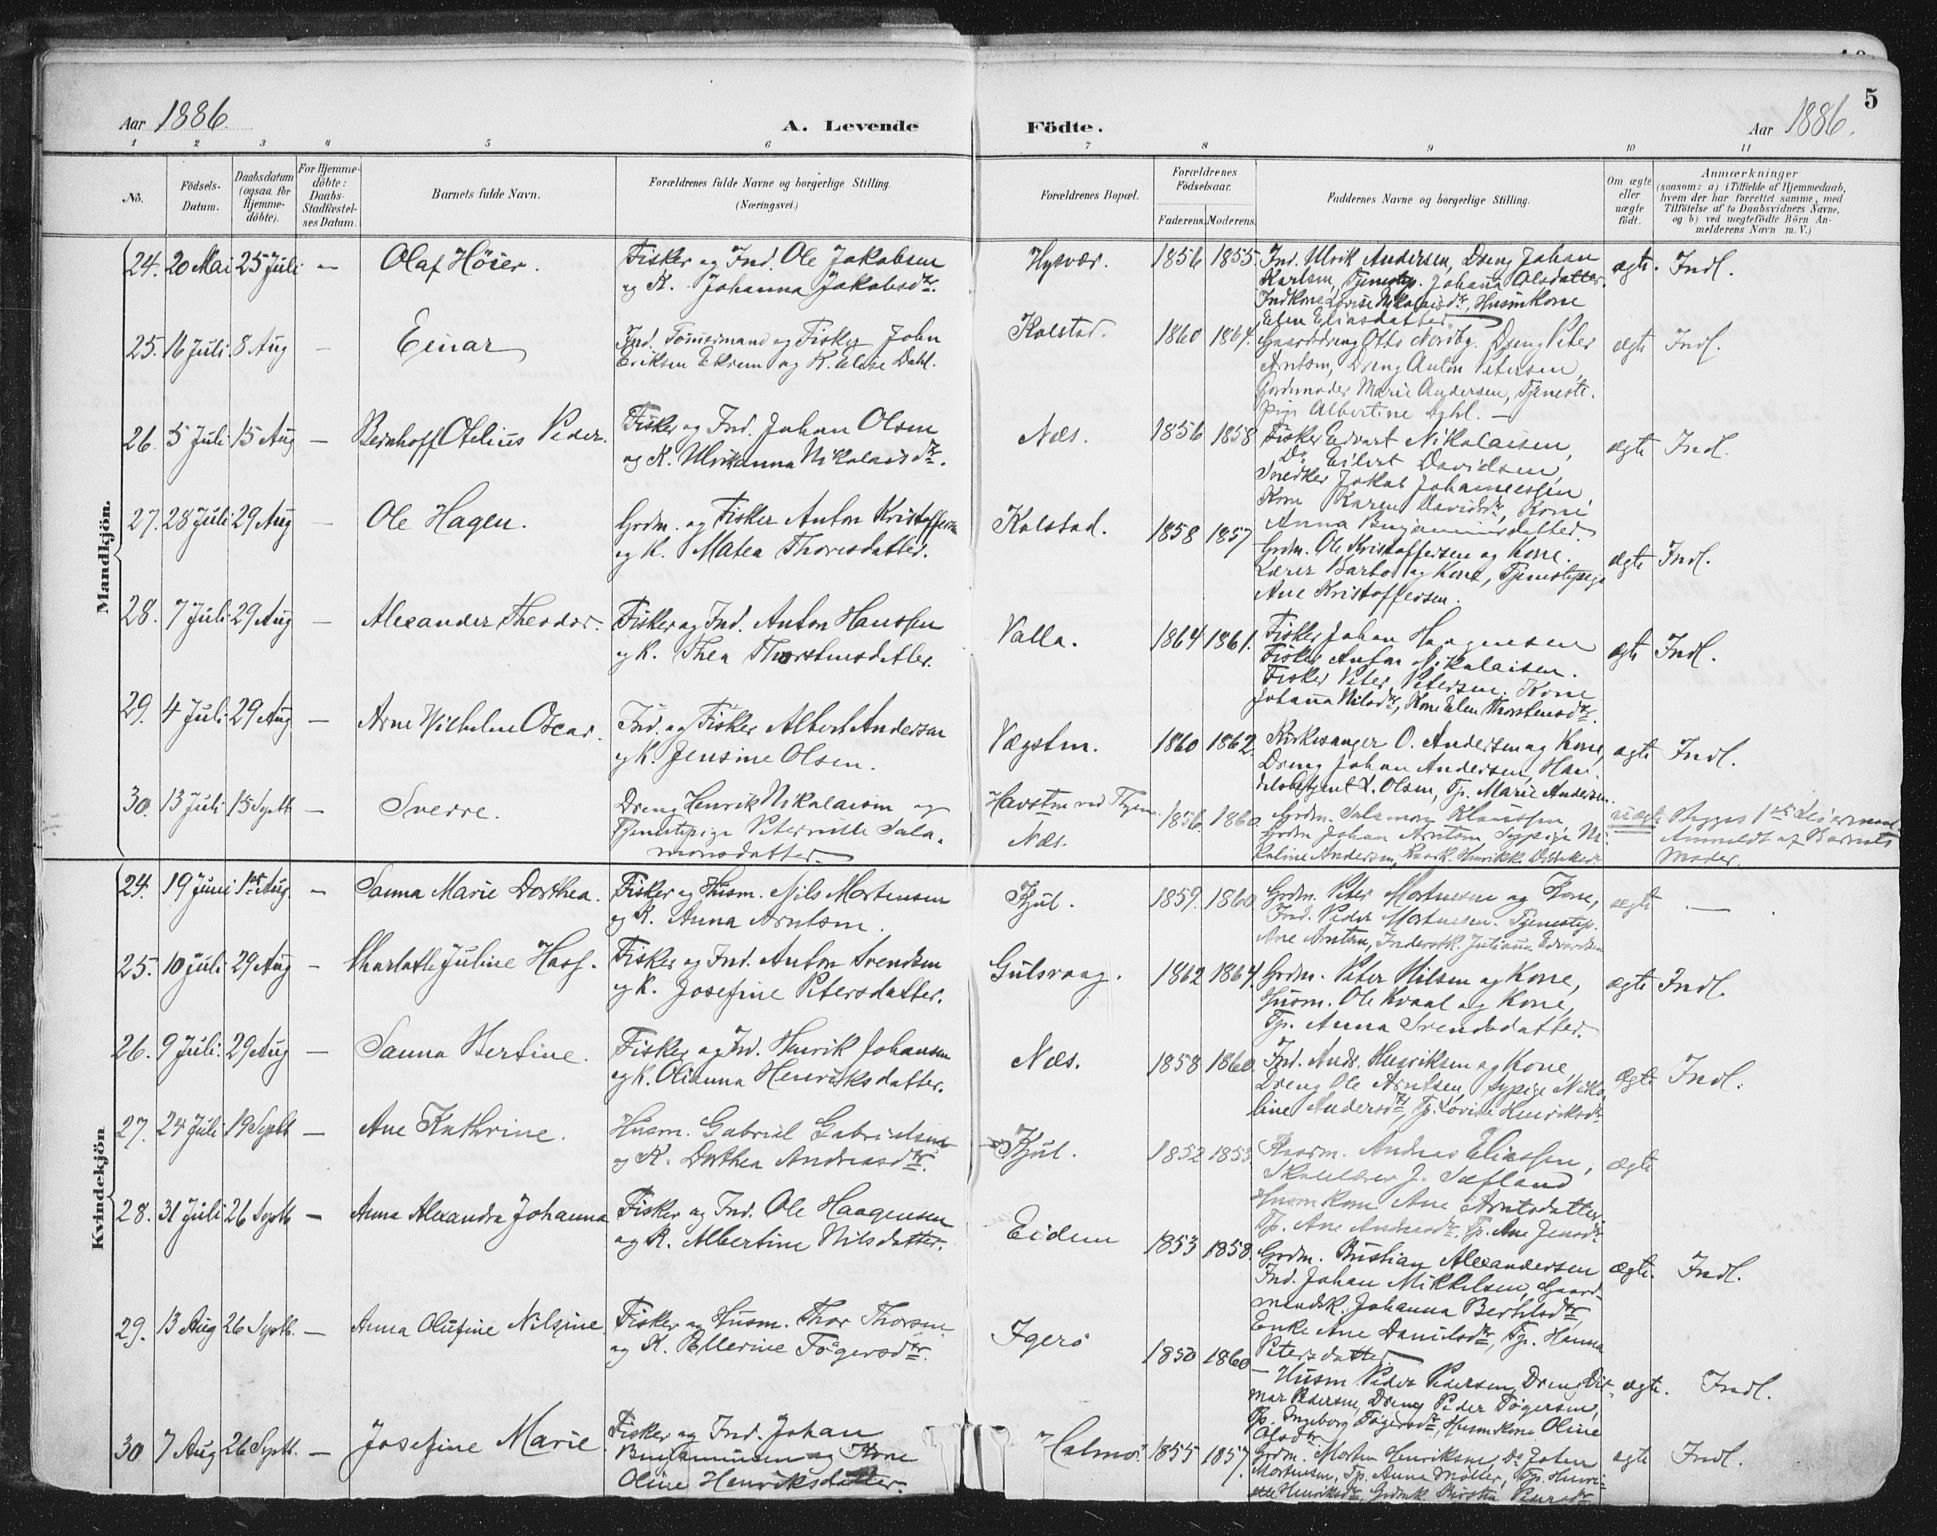 Aar 1886.
A. Levende Födte.
Aar 1886.
5
1 2 3 4 5 6 7 8 9 10 11
No.
Födsels-Datum.
Daabsdatum (ogsaa for Hjemme-döbte).
For Hjemme-döbte: Daabs-Stadfæstel-ses Datum.
Barnets fulde Navn.
Forældrenes fulde Navne og borgerlige Stilling.
(Næringsvei.)
Forældrenes Bopæl.
Forældrenes Födselsaar.
Faderens. Moderens.
Faddernes Navne og borgerlige Stilling.
Om ægte eller uægte födt.
Anmærkninger
(saasom: a) i Tilfælde af Hjemmedaab,
hvem der har forrettet samme, med
Tilföielse af to Daabsvidners Navne,
og b) ved uægtefödte Börn An-
melderens Navn m. V.)
Mandkjön.
24. 20 Mai 25 Juli – Olaf Höier.
Fisker og Ind. Ole Jakobsen
og K. Johanna Jakobsdtr.
Hysvær. 1856 1855.
Ind. Ulrik Andersen, Dreng Johan
Karlsen, Tjenestep. Johana Olsdatter.
Indkone Lovise Nikolaisdtr, Husmkone
Elen Eliasdatter
ægte. Indl.
25. 16 Juli 8 Aug – Einar
Ind. Tömmermand og Fisker John
Eriksen Ekrem og K. Elise Dahl.
Kolstad. 1860 1864.
Gaarddreng Otto Nordby. Dreng Peter
Arntsen, Dreng Anton Petersen,
Gordemoder Marie Andersen, Tjeneste-
pige Albertine Dahl. –
ægte Indl.
26. 5 Juli 15 Aug – Bernhoff Otelius Peder.
Fisker og Ind. Johan Olsen
og K. Ulrikanna Nikolaisdtr.
Næs. 1856 1858
Fisker Edvart Nikolaisen,
Do Eilert Davidsen,
Snedker Jakob Johannessen,
Kone Karen Davidsdtr, Kone
Anna Benjaminsdatter.
ægte Indl.
27. 28 Juli 29 Aug – Ole Hagen.
Grdm. og Fisker Anton Kristoffersen
og K. Matea Thorisdatter.
Kolstad. 1858 1857
Grdm. Ole Kristoffersen og Kone.
Lærer Barbo og Kone, Tjenestepige
Ane Kristoffersen.
ægte Indl.
28. 7 Juli 29 Aug – Alexander Theodor.
Fisker og Ind. Anton Hanssen
og K. Thea Thorstensdatter.
Valla. 1864 1861.
Fisker Johan Haagensen
Fisker Anton Nikolaisen.
Fisker Peter Petersen. Kone
Johana Nilsdtr, Kone Elen Thorstensdtr.
ægte Indl.
29. 4 Juli 29 Aug – Arne Wilhelm Oscar.
Ind. og Fisker Albert Andersen
og K. Jensine Olsen.
Vægsten. 1860 1862
Kirkesanger O. Andersen og Kone,
Dreng Johan Andersen, Han-
delsbetjent L. Olsen, Tp. Marie Andersen.
ægte Indl.
30. 13 Juli 15 Septb – Sverre.
Dreng Henrik Nikolaisen og
Tjenestepige Peternille Salo-
monsdatter.
Havsten ved Thjem
Næs.
1856 1860.
Grdm. Salamon Klaussen
Grdm Johan Arntsen Sypige Ni-
kaline Andersen, Henrikke
uægte Begges 1ste Leiermaal
Anmeldt af Barnets
Moder.
Kvindekjön
24. 19 Juni 1ste Aug. – Sanna Marie Dorthea.
Fisker og Husm. Nils Mortensen
og K. Anna Arntsen.
Kjul. 1859. 1860
Grdm. Peter Mortensen og Kone,
Ind. Peder Mortensen. Tjenestep.
Ane Arntsen, Juliana Edvardsen
ægte –
25. 10 Juli 29 Aug – Sharlotte Juline Hass.
Fisker og Ind. Anton Svendsen
og K. Josefine Petersdatter.
Gulsvaag. 1862 1864.
Grdm. Peter Nilsen og Kone,
Husm. Ole Kvaal og Kone,
Tp. Anna Svendsdatter.
ægte Indl.
26. 9 Juli. 29 Aug – Sanna Bertine.
Fisker og Ind. Henrik Johansen
og K. Olianna Henriksdatter.
Næs. 1858 1860
Ind. Ands. Henriksen og Kone,
Dreng Ole Arntsen, Sypige Niko-
line Andersdtr, Tp. Lovise Henriksdtr
Ægte Indl.
27. 24 Juli 19 Septb – Ane Kathrine.
Husm. Gabriel Gabrielsen
og K. Dorthea Andreasdtr.
Kjul. 1852 1853
Andreas Eliassen,
Skolelærer J. Sæfland
Husmkone Ane Arntsdatter,
Tp. Ane Andreasdtr, Tp. Ane Jensdtr.
ægte
28. 31 Juli 26 Septb – Anna Alexandra Johanna
Fisker og Ind. Ole Haagensen
og K. Albertine Nilsdatter.
Eidem 1853 1858.
Grdm. Bastian Alexandersen
Ind. Johan Mikkelsen, Gaard-
mandsk. Johanna Bertelsdtr,
Enke Ane Danielsdtr, Tp. Hanna
Petersdatter
ægte. Indl.
29. 13 Aug 26 Septb. – Anna Olufine Nilsine.
Fisker og Husm. Thor Thorsen
og K. Pellerine Fögersdtr.
Igerö 1850 1860
– Husm Peder Pedersen, Dreng Dit-
mar Pedersen, Dreng Peder Fögersen,
Tp. Ingeborg Fögersdtr, Husmkone Oline
Olsdtr
ægte. Indl.
30 7 Aug 26 Septb. – Josefine Marie
Fisker og Ind. Johan
Benjaminsen og Kone
Oline Henriksdatter.
Halmö. 1855 1857.
Grdm. Morten Henriksen, Do Johan
Mortensen, Tp. Anna Möller, Tp. Henri-
ette Henriksdtr, Grdmk. Kirsten
ægte Indl.